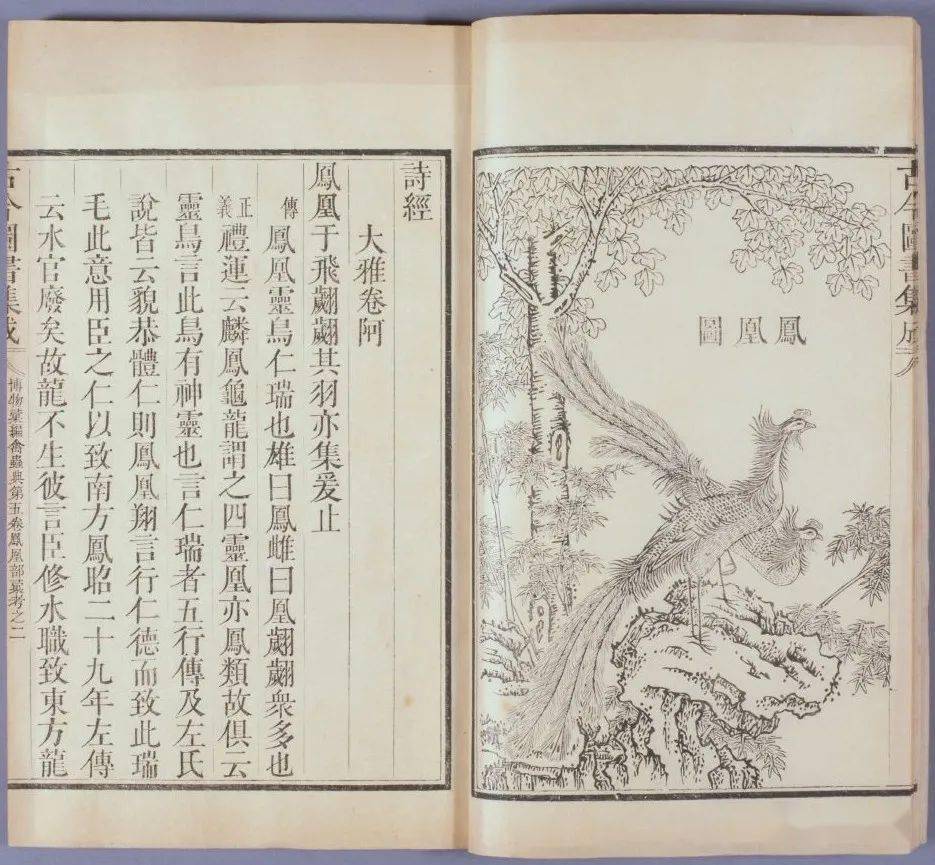 古今圖書集成
鳳凰圖
詩經
大雅卷阿
鳳凰于飛翽翽其羽亦集爰止
傳鳳凰靈鳥仁瑞也雄曰鳳雌曰凰翽翽衆多也
正義禮運云麟鳳龜龍謂之四靈凰亦鳳類故俱云
靈鳥言此鳥有神靈也言仁瑞者五行傳及左氏
說皆云貌恭體仁則鳳凰翔言行仁德而致此瑞
毛此意用臣之仁以致南方鳳昭二十九年左傳
云水官廢矣故龍不生彼言臣修水職致東方龍
古今圖書集成
博物彙編禽蟲典第五卷鳳凰部彙考之二